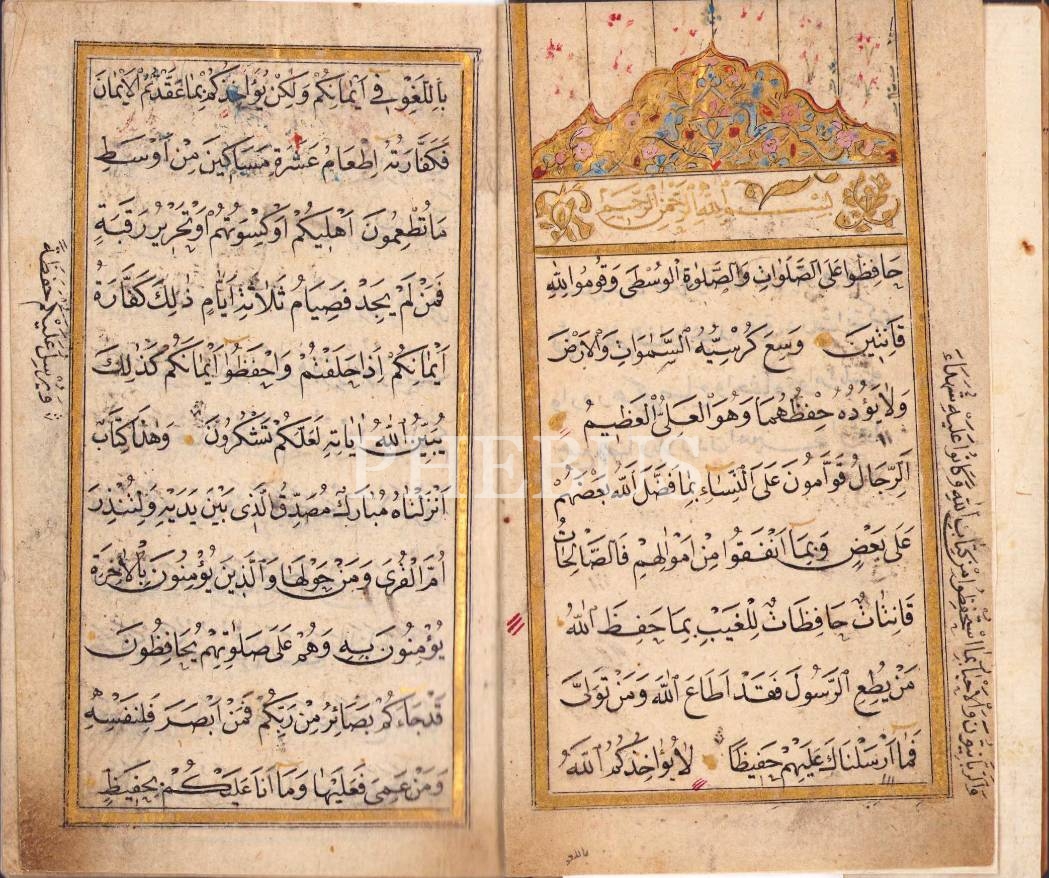 بسم الله الرحمن الرحيم
حَافِظُوا عَلَى الصَّلَوَاتِ وَالصَّلٰوةِ الْوُسْطٰى وَقُومُوا لِلّٰهِ
قَانِتِينَ وَسِعَ كُرْسِيُّهُ السَّمٰوَاتِ وَالْاَرْضَ
وَلَا يَؤُدُهُ حِفْظُهُمَا وَهُوَ الْعَلِىُّ الْعَظِيمُ
اَلرِّجَالُ قَوَّامُونَ عَلَى النِّسَاءِ بِمَا فَضَّلَ اللّٰهُ بَعْضَهُمْ
عَلٰى بَعْضٍ وَبِمَا اَنْفَقُوا مِنْ اَمْوَالِهِمْ فَالصَّالِحَاتُ
قَانِتَاتٌ حَافِظَاتٌ لِلْغَيْبِ بِمَا حَفِظَ اللّٰهُ
مَنْ يُطِعِ الرَّسُولَ فَقَدْ اَطَاعَ اللّٰهَ وَمَنْ تَوَلّٰى
فَمَا اَرْسَلْنَاكَ عَلَيْهِمْ حَفِيظًا لَا يُؤَاخِذُكُمُ اللّٰهُ
وَالرَّبَّانِيُّونَ وَالْاَحْبَارُ بِمَا اسْتُحْفِظُوا مِنْ كِتَابِ اللّٰهِ وَكَانُوا عَلَيْهِ شُهَدَاءَ
باللغو
بِاللَّغْوِ فِى اَيْمَانِكُمْ وَلٰكِنْ يُؤَاخِذُكُمْ بِمَا عَقَّدْتُمُ الْاَيْمَانَ
فَكَفَّارَتُهُ اِطْعَامُ عَشَرَةِ مَسَاكِينَ مِنْ اَوْسَطِ
مَا تُطْعِمُونَ اَهْلِيكُمْ اَوْ كِسْوَتُهُمْ اَوْ تَحْرِيرُ رَقَبَةٍ
فَمَنْ لَمْ يَجِدْ فَصِيَامُ ثَلَاثَةِ اَيَّامٍ ذٰلِكَ كَفَّارَةُ
اَيْمَانِكُمْ اِذَا حَلَفْتُمْ وَاحْفَظُوا اَيْمَانَكُمْ كَذٰلِكَ
يُبَيِّنُ اللّٰهُ لَكُمْ اٰيَاتِهِ لَعَلَّكُمْ تَشْكُرُونَ وَهٰذَا كِتَابٌ
اَنْزَلْنَاهُ مُبَارَكٌ مُصَدِّقُ الَّذِى بَيْنَ يَدَيْهِ وَلِتُنْذِرَ
اُمَّ الْقُرٰى وَمَنْ حَوْلَهَا وَالَّذِينَ يُؤْمِنُونَ بِالْاٰخِرَةِ
يُؤْمِنُونَ بِهِ وَهُمْ عَلٰى صَلٰوتِهِمْ يُحَافِظُونَ
قَدْ جَاءَكُمْ بَصَائِرُ مِنْ رَبِّكُمْ فَمَنْ اَبْصَرَ فَلِنَفْسِهِ
وَمَنْ عَمِىَ فَعَلَيْهَا وَمَا اَنَا عَلَيْكُمْ بِحَفِيظٍ
وَيُرْسِلُ عَلَيْكُمْ حَفَظَةً
PHEBUS